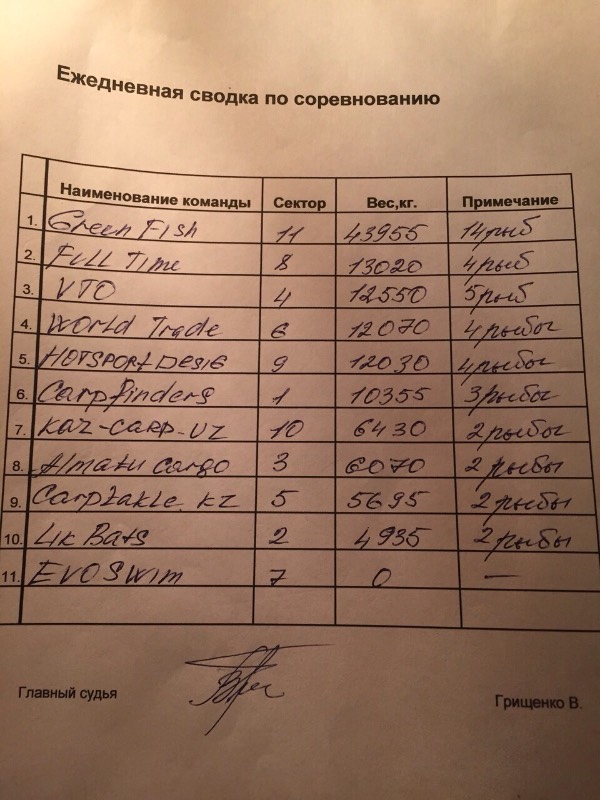 Ежедневная сводка по соревнованию
Наименование команды Сектор Вес,кг. Примечание
1. Green Fish 11 43955 14рыб
2. Full Time 8 13020 4рыб
3. VTO 4 12550 5рыб
4. World Trade 6 12070 4рыбы
5. HOTSPORTDESIG 9 12030 4рыбы
6. Carpfinders 1 10355 3рыбы
7. KAZ-CARP-UZ 10 6430 2рыбы
8. Almatu cargo 3 6070 2рыбы
9. Carptakle.kz 5 5695 2рыбы
10. Uk Bats 2 4935 2рыбы
11. EVOSwim 7 0 —
Главный судья Грищенко В.